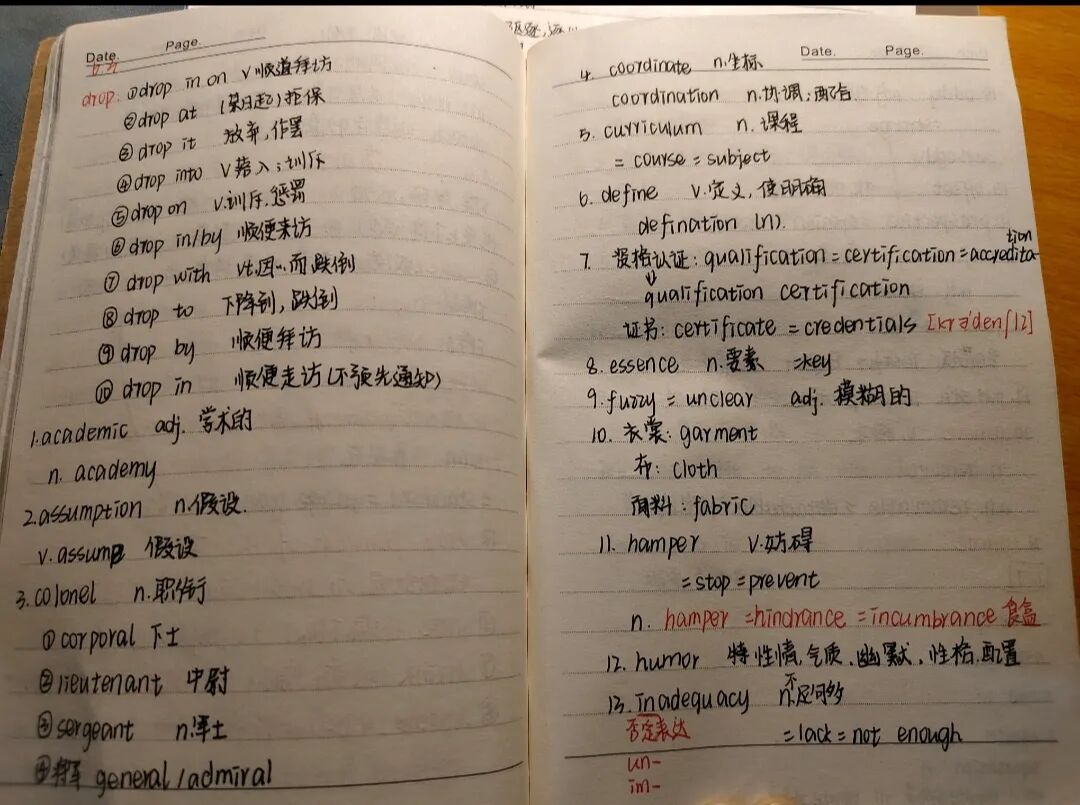 Date. Page.
drop. ①drop in on v 顺道拜访
②drop at (某日起)担保
③drop it 放弃,作罢
④drop into v 落入;训斥
⑤drop on v.训斥,惩罚
⑥drop in/by 顺便来访
⑦drop with vt.因…而跌倒
⑧drop to 下降到,跌倒
⑨drop by 顺便拜访
⑩drop in 顺便走访(不预先通知)
1.academic adj. 学术的
n. academy
2.assumption n.假设.
v.assume 假设
3.colonel n.职衔
①corporal 下士
②lieutenant 中尉
③sergeant n.军士
④将军 general/admiral
Date. Page.
4. coordinate n.坐标
coordination n.协调;配合
5. curriculum n. 课程
= course = subject
6. define v.定义,使明确
defination (n).
7. 资格认证: qualification = certification = accreditation
qualification certification
证书: certificate = credentials [krə'denʃlz]
8. essence n.要素 =key
9. fuzzy = unclear adj. 模糊的
10. 衣裳: garment
布: cloth
面料: fabric
11. hamper v.妨碍
=stop =prevent
n. hamper =hindrance =incumbrance 食盒
12. humor 特性情,气质,幽默,性格,配置
13. inadequacy n.不足够
否定表达 =lack = not enough
un-
im-